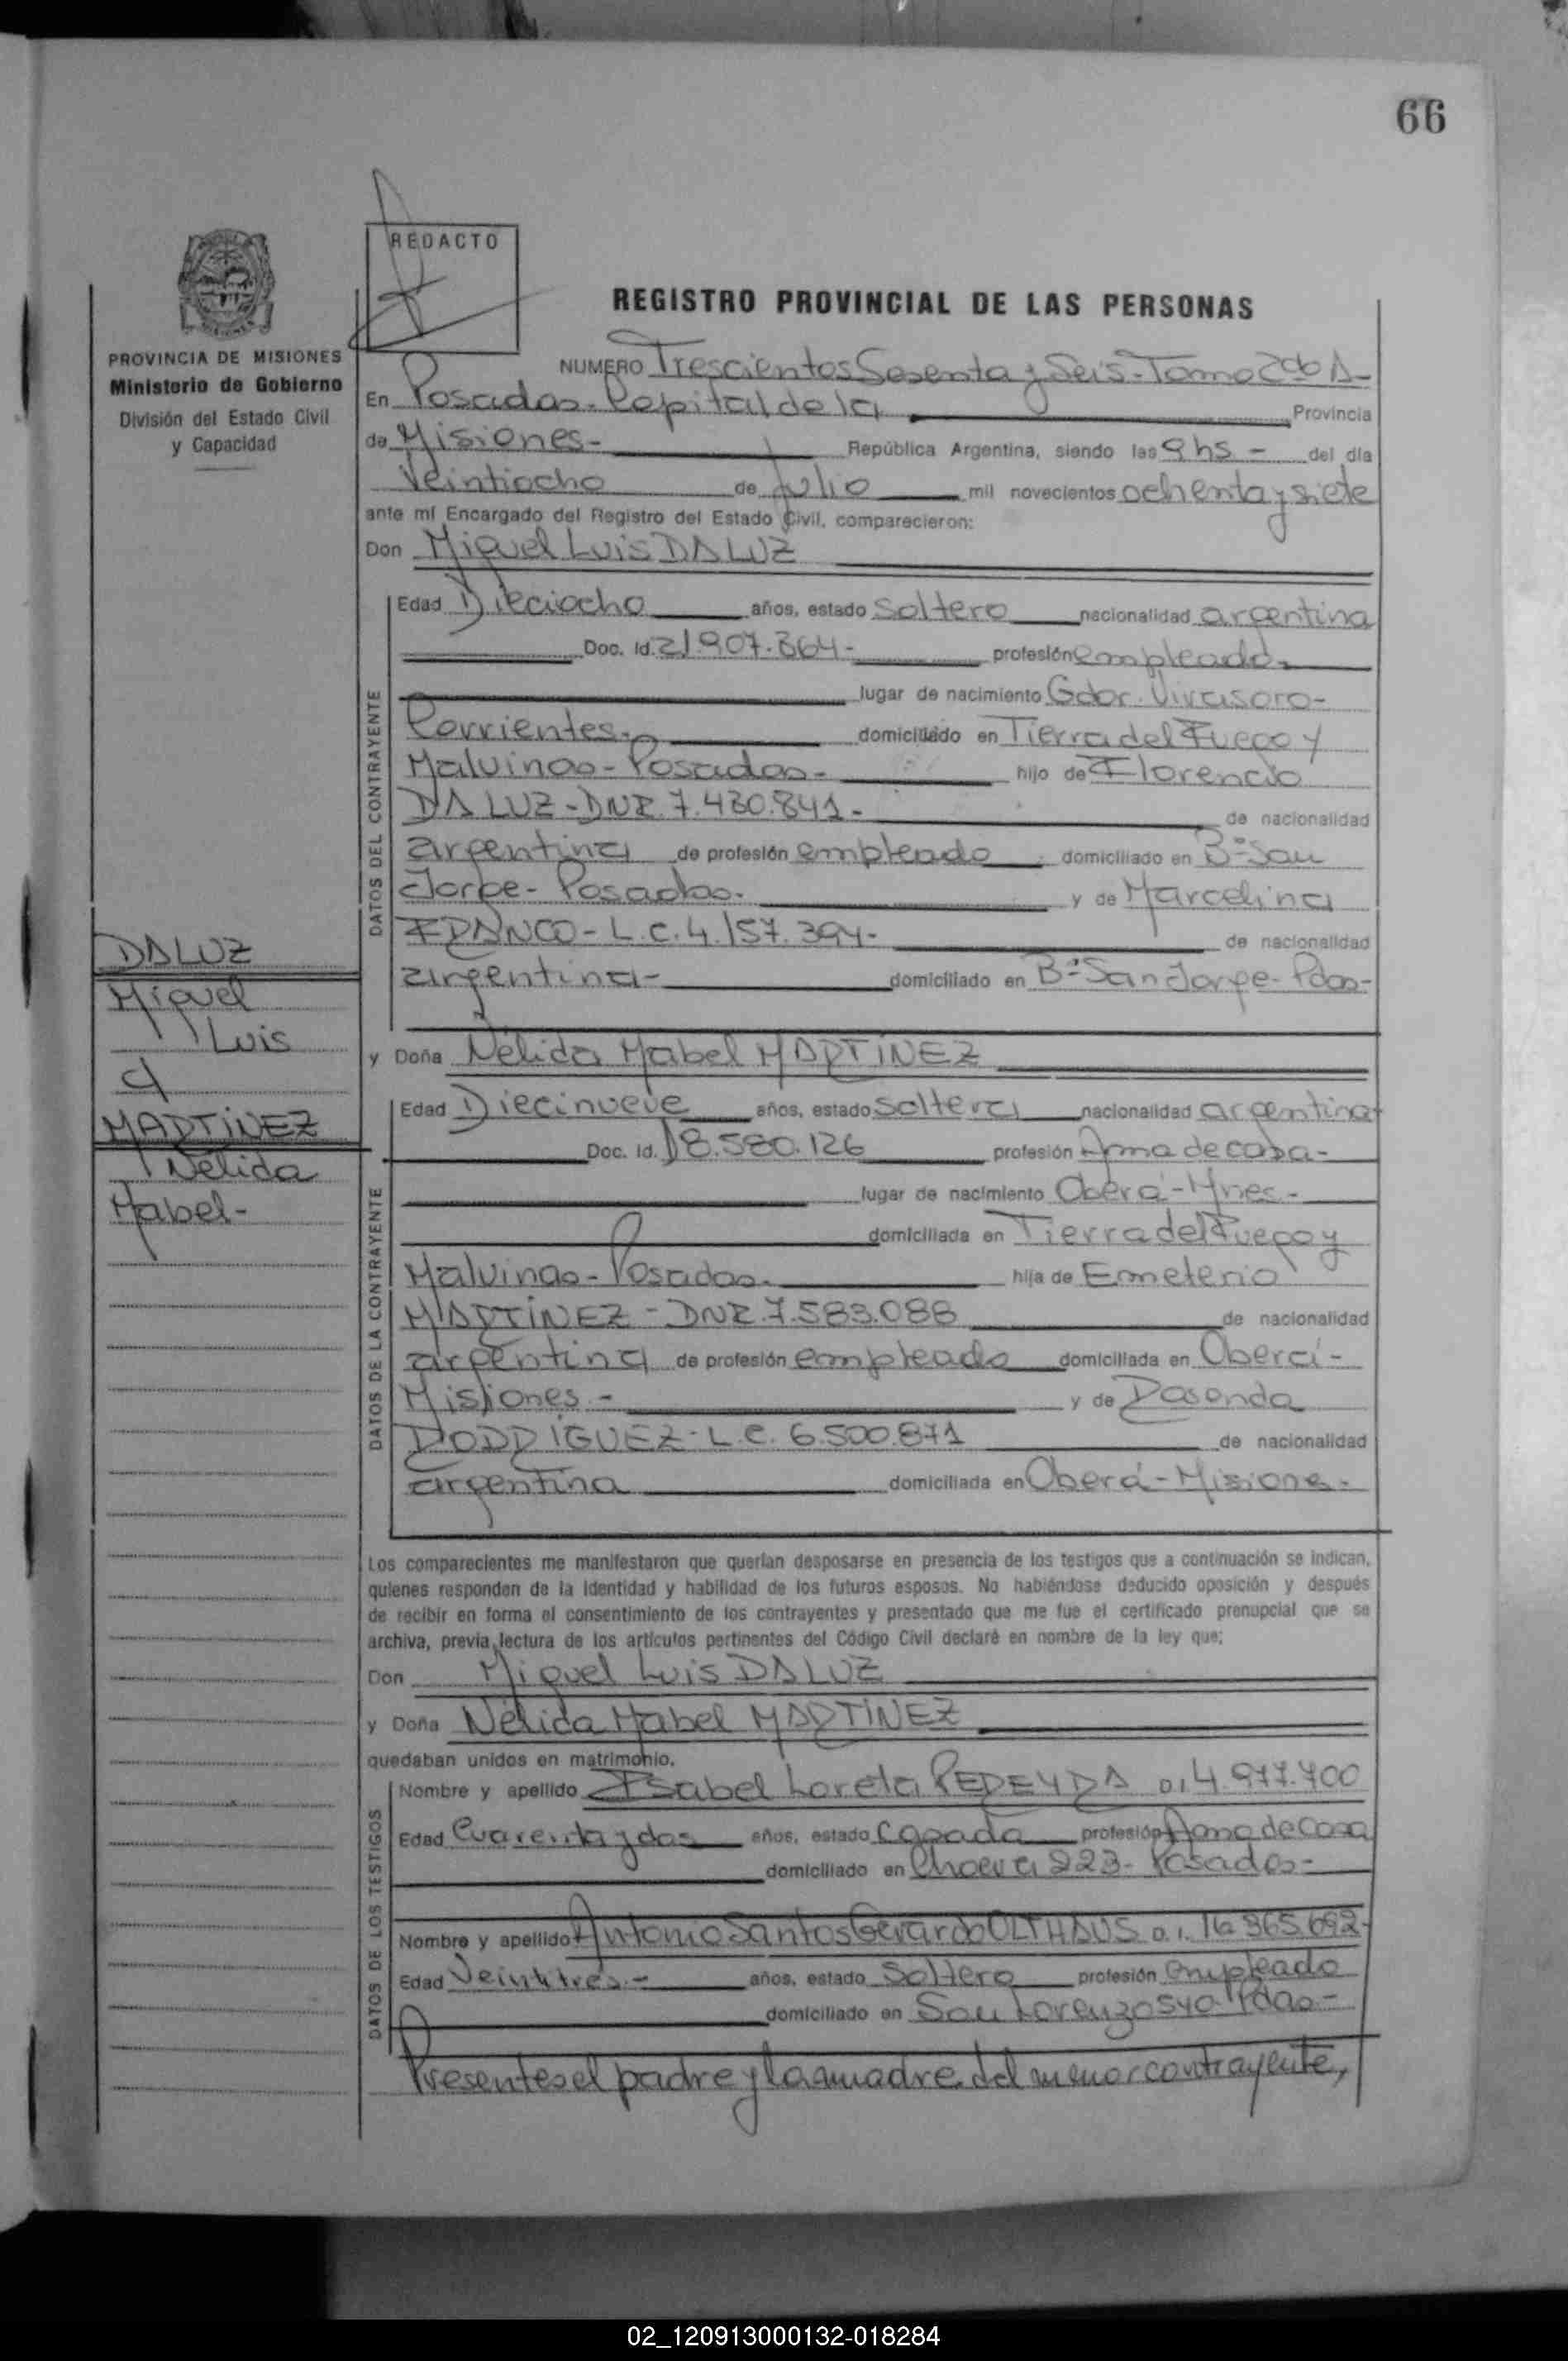 66
REDACTO
REGISTRO PROVINCIAL DE LAS PERSONAS
PROVINCIA DE MISIONES
Ministerio de Gobierno
División del Estado Civil
y Capacidad
NUMERO Trescientos Sesenta y Seis - Tomo 2do A-
En Posadas - Capital de la Provincia
de Misiones - República Argentina, siendo las 9 hs - del día
Veintiocho de Julio mil novecientos ochenta y siete
ante mí Encargado del Registro del Estado Civil, comparecieron:
Don Miguel Luis DA LUZ
DATOS DEL CONTRAYENTE
Edad Dieciocho años, estado Soltero nacionalidad argentina
Doc. Id. 21.907.364.- profesión empleado-
lugar de nacimiento Gdor. Virasoro-
Corrientes.- domiciliado en Tierra del Fuego y
Malvinas - Posadas.- hijo de Florencio
DA LUZ - DNI. 7.430.841.- de nacionalidad
argentina de profesión empleado domiciliado en Bº San
Jorge - Posadas.- y de Marcelina
FRANCO - L.C. 4.157.394.- de nacionalidad
argentina - domiciliado en Bº San Jorge - Pdas-
DA LUZ
Miguel
Luis
c/
MARTINEZ
Nélida
Mabel-
y Doña Nélida Mabel MARTINEZ
DATOS DE LA CONTRAYENTE
Edad Diecinueve años, estado soltera nacionalidad argentina
Doc. Id. 18.580.126 profesión Ama de casa-
lugar de nacimiento Oberá - Mnes-
domiciliada en Tierra del Fuego y
Malvinas - Posadas.- hija de Emeterio
MARTINEZ - DNI. 7.583.088 de nacionalidad
argentina de profesión empleado domiciliada en Oberá-
Misiones.- y de Rosenda
RODRIGUEZ - L.C. 6.500.871 de nacionalidad
argentina domiciliada en Oberá - Misiones-
Los comparecientes me manifestaron que querían desposarse en presencia de los testigos que a continuación se indican,
quienes responden de la identidad y habilidad de los futuros esposos. No habiéndose deducido oposición y después
de recibir en forma el consentimiento de los contrayentes y presentado que me fue el certificado prenupcial que se
archiva, previa lectura de los artículos pertinentes del Código Civil declaré en nombre de la ley que:
Don Miguel Luis DA LUZ
y Doña Nélida Mabel MARTINEZ
quedaban unidos en matrimonio.
DATOS DE LOS TESTIGOS
Nombre y apellido Isabel Loreta PEREYRA D.I. 4.977.400
Edad Cuarenta y dos años, estado Casada profesión Ama de casa
domiciliado en 223 - Posadas-
Nombre y apellido Antonio Santos Gerardo OLTHAUS D.I. 16.365.692-
Edad Veintitres.- años, estado Soltero profesión empleado
domiciliado en San Lorenzo 540 Pdas-
Presentes el padre y la madre del menor contrayente,
02_120913000132-018284